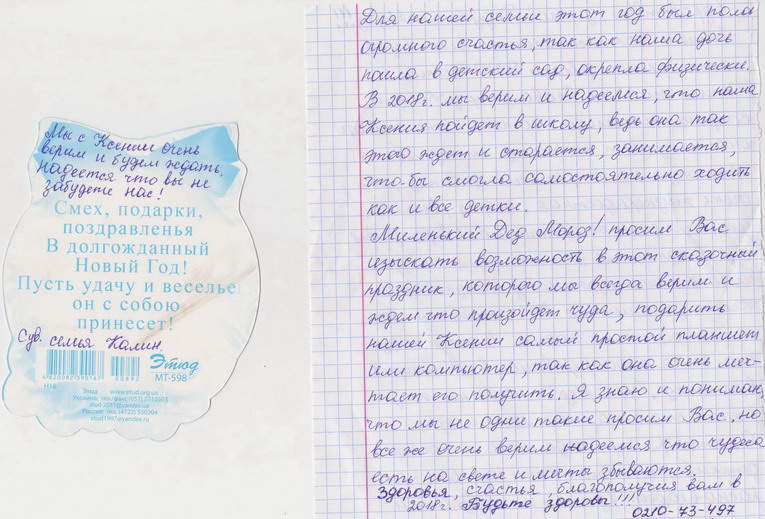 Мы с Ксенией очень
верим и будем ждать,
надеется что вы не
забудете нас!
Смех, подарки,
поздравленья
В долгожданный
Новый Год!
Пусть удачу и веселье
он с собою
принесет!
Сув. семья Калин.
Этюд
4820082590167 00692 МТ-598
Н16
Этюд www.etud.org.ua
Украина: тел./факс (057) 7210303
etud-2011@yandex.ru
Россия: тел. (4722) 550204
etud1997@yandex.ru
Для нашей семьи этот год был полон
огромного счастья, так как наша дочь
пошла в детский сад, окрепла физически.
В 2018г. мы верим и надеемся, что наша
Ксения пойдет в школу, ведь она так
этого ждет и старается, занимается,
что-бы смогла самостоятельно ходить
как и все детки.
Миленький Дед Мороз! просим Вас
изыскать возможность в этот сказочный
праздник, которого мы всегда верим и
ждем что произойдет чуда, подарить
нашей Ксении самый простой планшет
или компьютер, так как она очень меч-
тает его получить. Я знаю и понимаю,
что мы не одни такие просим Вас, но
все же очень верим надеемся что чудеса
есть на свете и мечты сбываются.
Здоровья, счастья, благополучия вам в
2018г. Будьте здоровы!!!
0210-73-497